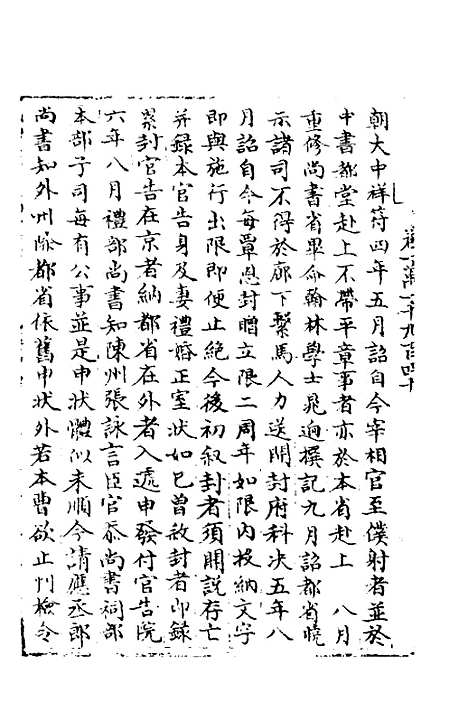 卷一萬一千九百四十
朝大中祥符四年五月詔自今宰相官至僕射者並於
中書都堂赴上不帶平章事者亦於本省赴上　八月
重修尚書省畢命翰林學士晁逈撰記九月詔都省曉
示諸司不得於廊下繫馬人力送開封府科決五年八
月詔自今每覃恩封贈立限二周年如限內投納文字
即與施行出限即便止絕今後初叙封者須開說存亡
并錄本官告身及妻禮婚正室狀如已曾敘封者即錄
累封官告在京者納都省在外者入遞申發付官告院
六年八月禮部尚書知陳州張詠言臣官忝尚書祠部
本部子司每有公事並是申狀體似未順今請應丞郎
尚書知外州除都省依舊申狀外若本曹欲止刋檢令